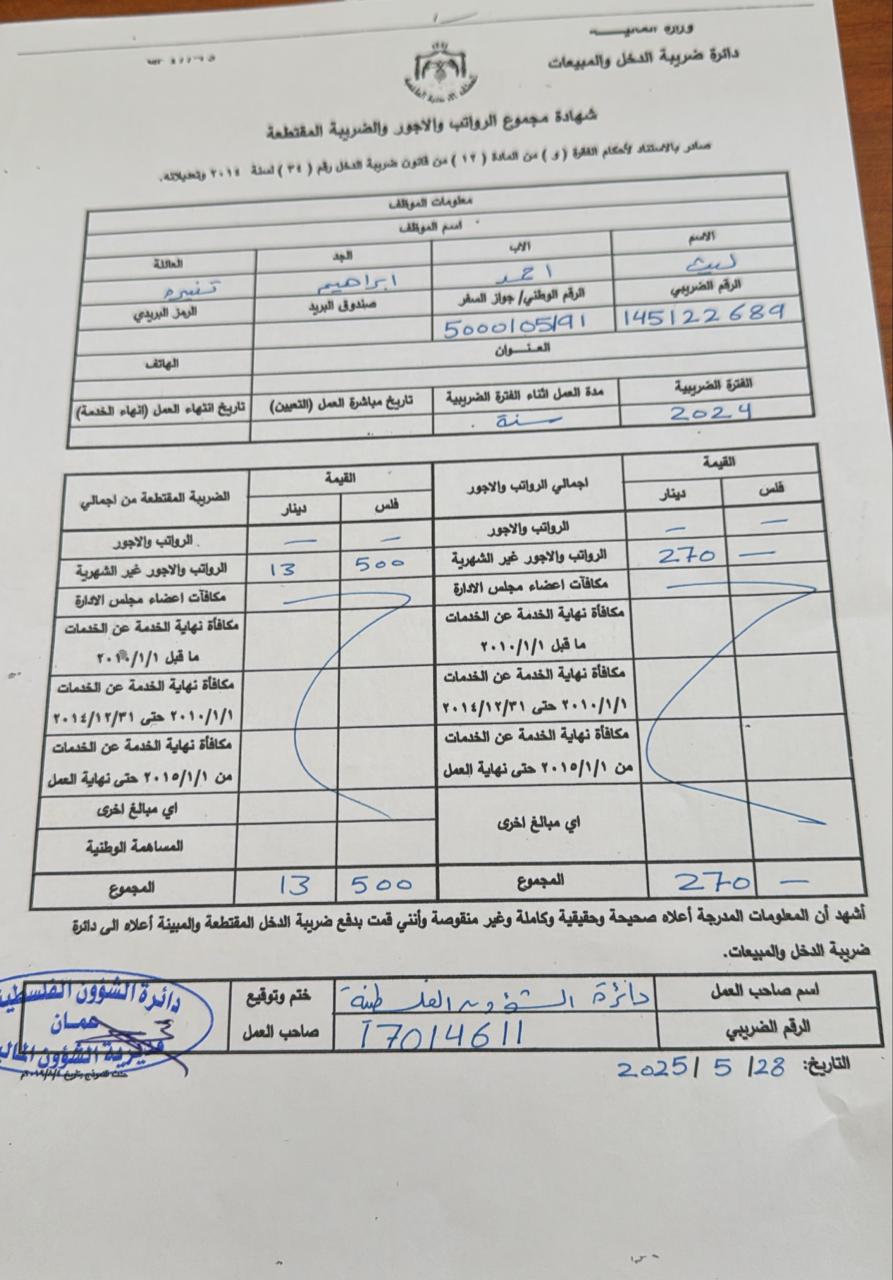 وزارة المالية
دائرة ضريبة الدخل والمبيعات
شهادة مجموع الرواتب والاجور والضريبة المقتطعة
صادر بالاستناد لأحكام الفقرة (و) من المادة (١٢) من قانون ضريبة الدخل رقم (٣٤) لسنة ٢٠١٤ وتعديلاته.
معلومات الموظف
اسم الموظف
الاسم الاب الجد العائلة
ليث احمد ابراهيم
الرقم الضريبي الرقم الوطني/ جواز السفر صندوق البريد الرمز البريدي
145122689 5000105191
العنوان الهاتف
الفترة الضريبية مدة العمل اثناء الفترة الضريبية تاريخ مباشرة العمل (التعيين) تاريخ انتهاء العمل (انهاء الخدمة)
2024 سنة
القيمة اجمالي الرواتب والاجور القيمة الضريبة المقتطعة من اجمالي
فلس دينار فلس دينار
— — الرواتب والاجور — — الرواتب والاجور
— 270 الرواتب والاجور غير الشهرية 500 13 الرواتب والاجور غير الشهرية
مكافآت اعضاء مجلس الادارة مكافآت اعضاء مجلس الادارة
مكافأة نهاية الخدمة عن الخدمات مكافأة نهاية الخدمة عن الخدمات
ما قبل ٢٠١٠/١/١ ما قبل ٢٠١٠/١/١
مكافأة نهاية الخدمة عن الخدمات مكافأة نهاية الخدمة عن الخدمات
٢٠١٠/١/١ حتى ٢٠١٤/١٢/٣١ ٢٠١٠/١/١ حتى ٢٠١٤/١٢/٣١
مكافأة نهاية الخدمة عن الخدمات مكافأة نهاية الخدمة عن الخدمات
من ٢٠١٥/١/١ حتى نهاية العمل من ٢٠١٥/١/١ حتى نهاية العمل
اي مبالغ اخرى اي مبالغ اخرى
المساهمة الوطنية
— 270 المجموع 500 13 المجموع
أشهد أن المعلومات المدرجة أعلاه صحيحة وحقيقية وكاملة وغير منقوصة وأنني قمت بدفع ضريبة الدخل المقتطعة والمبينة أعلاه الى دائرة
ضريبة الدخل والمبيعات.
اسم صاحب العمل دائرة الشؤون الفلسطينية ختم وتوقيع
الرقم الضريبي 17014611 صاحب العمل
دائرة الشؤون الفلسطي
عمان
مديرية الشؤون المالي
التاريخ: 28/ 5 /2025